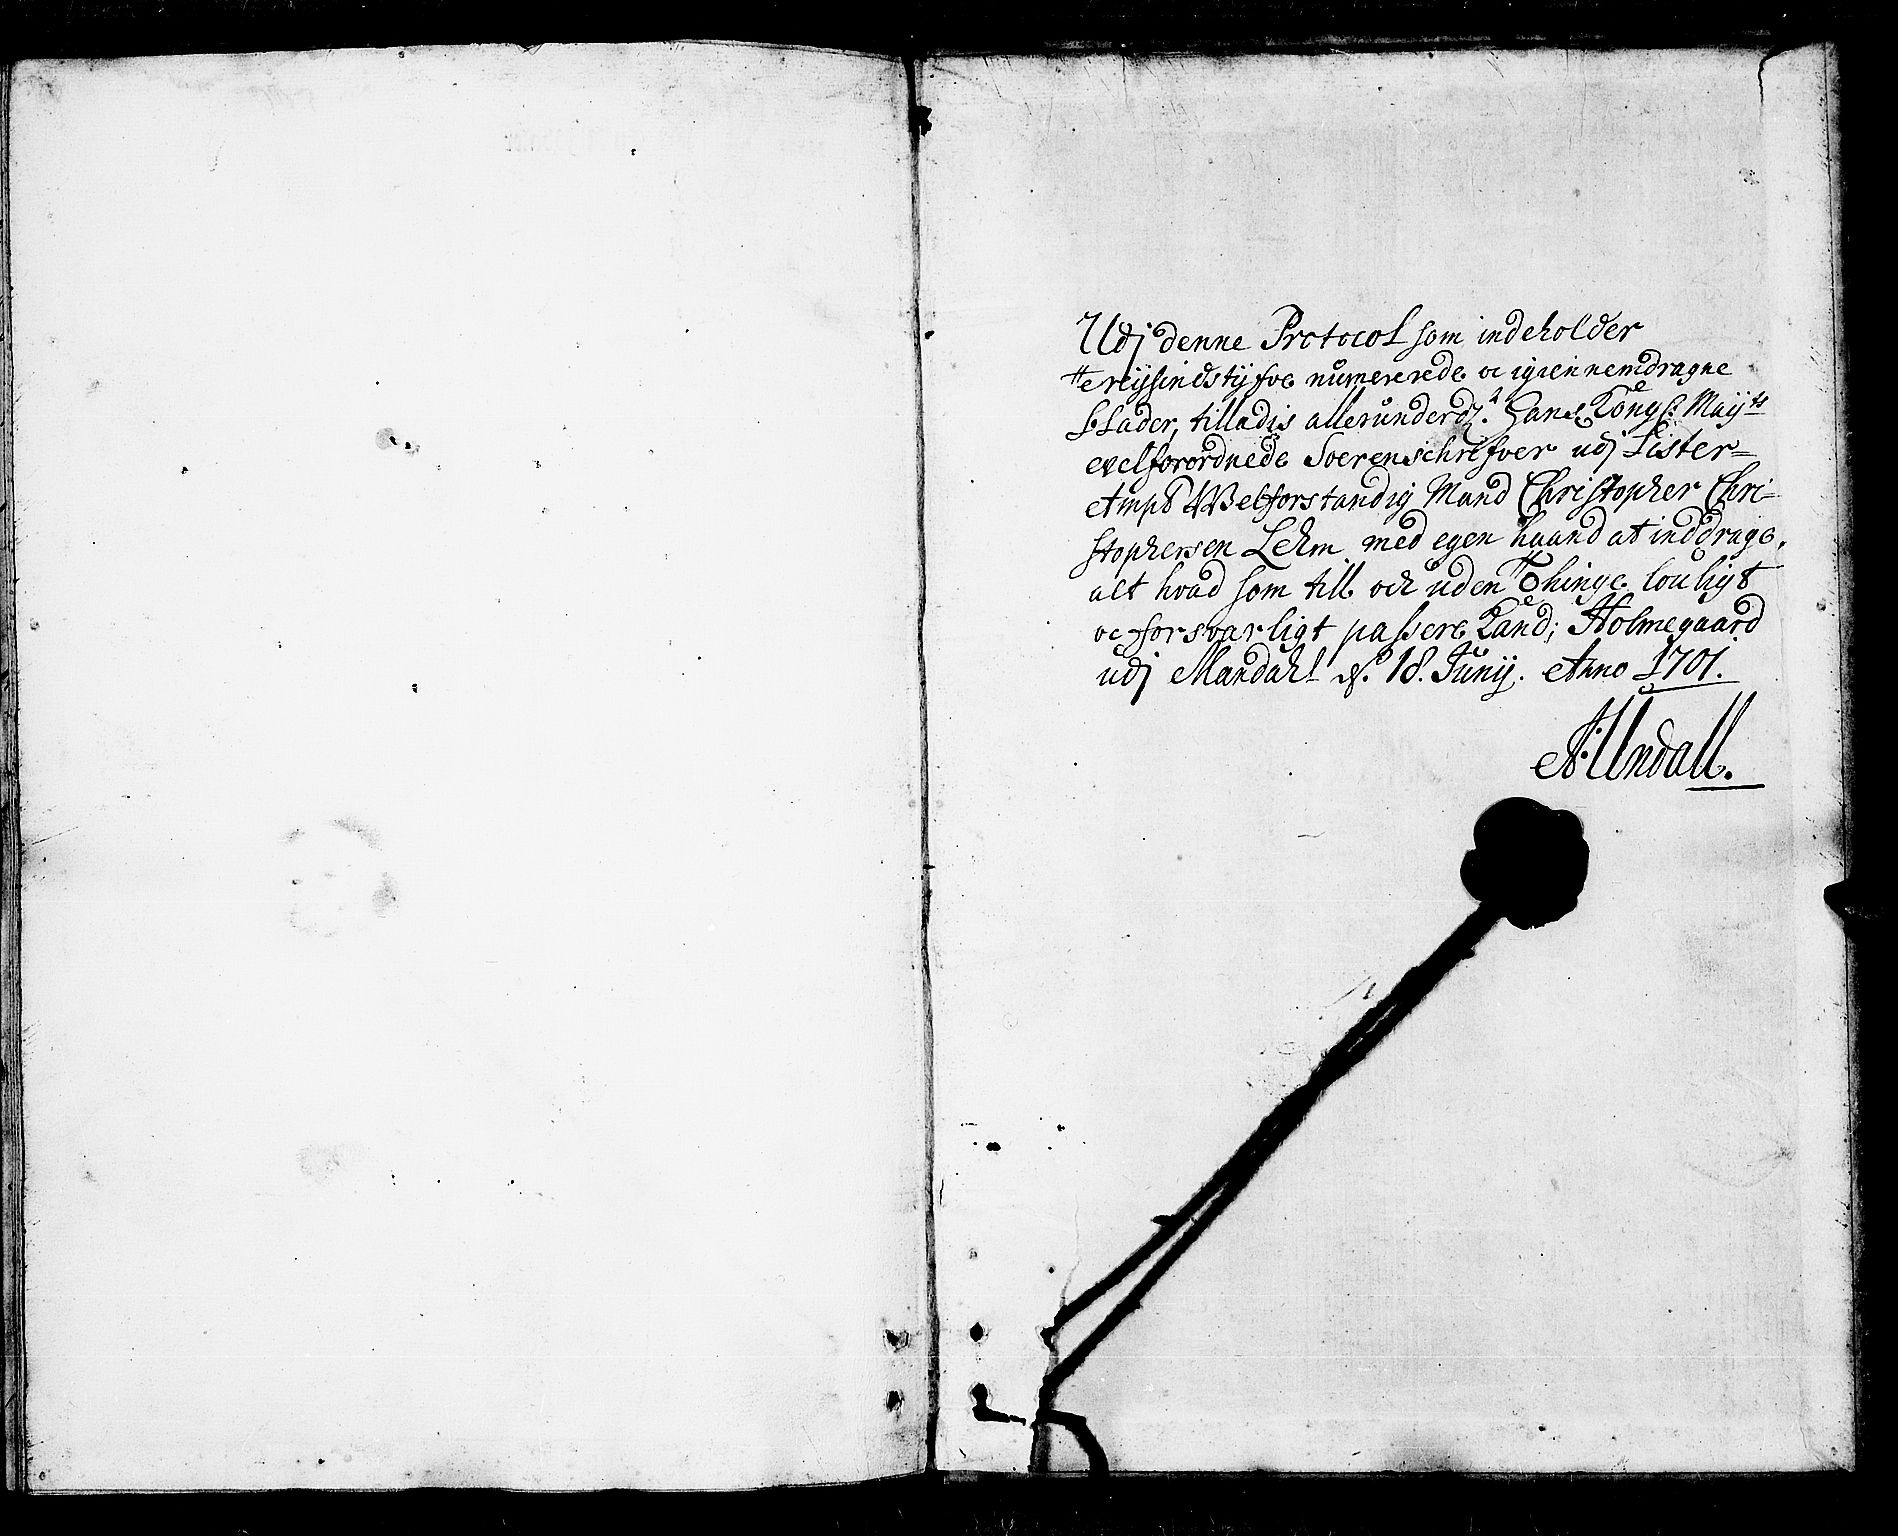 Udj denne Protocol som indeholder
treijsindstyfve numererede oc igiennemdragne
blader, tilladis allerunderd: Hans Kongl: Maÿts
velforordnede Soerenschrifver udj Lister-
Ampt Welforstandig Mand Christopher Chri-
stophersen Lehm med egen haand at inddrage,
alt hvad som till och uden Thinge louligt
oc forsvarligt passere kand; Holmegaard
udj Mandahl d. 18. Junij. Anno 1701.
A: Undall.